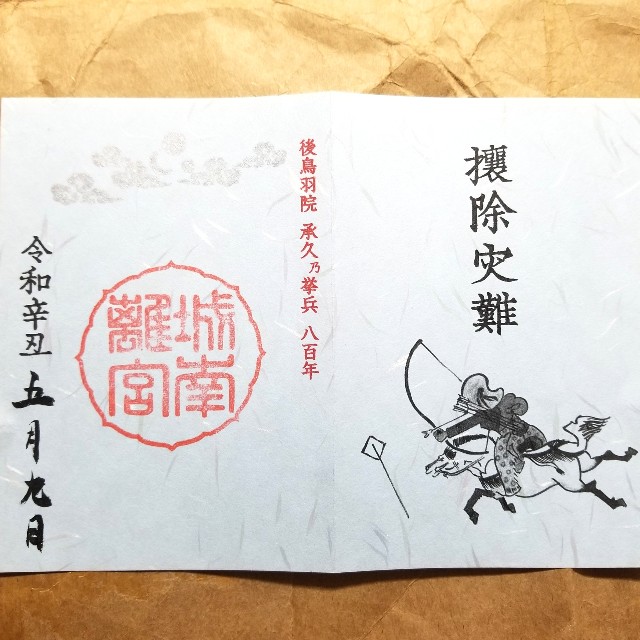 攘除災難
後鳥羽院 承久乃挙兵 八百年
城南離宮
令和辛丑五月九日